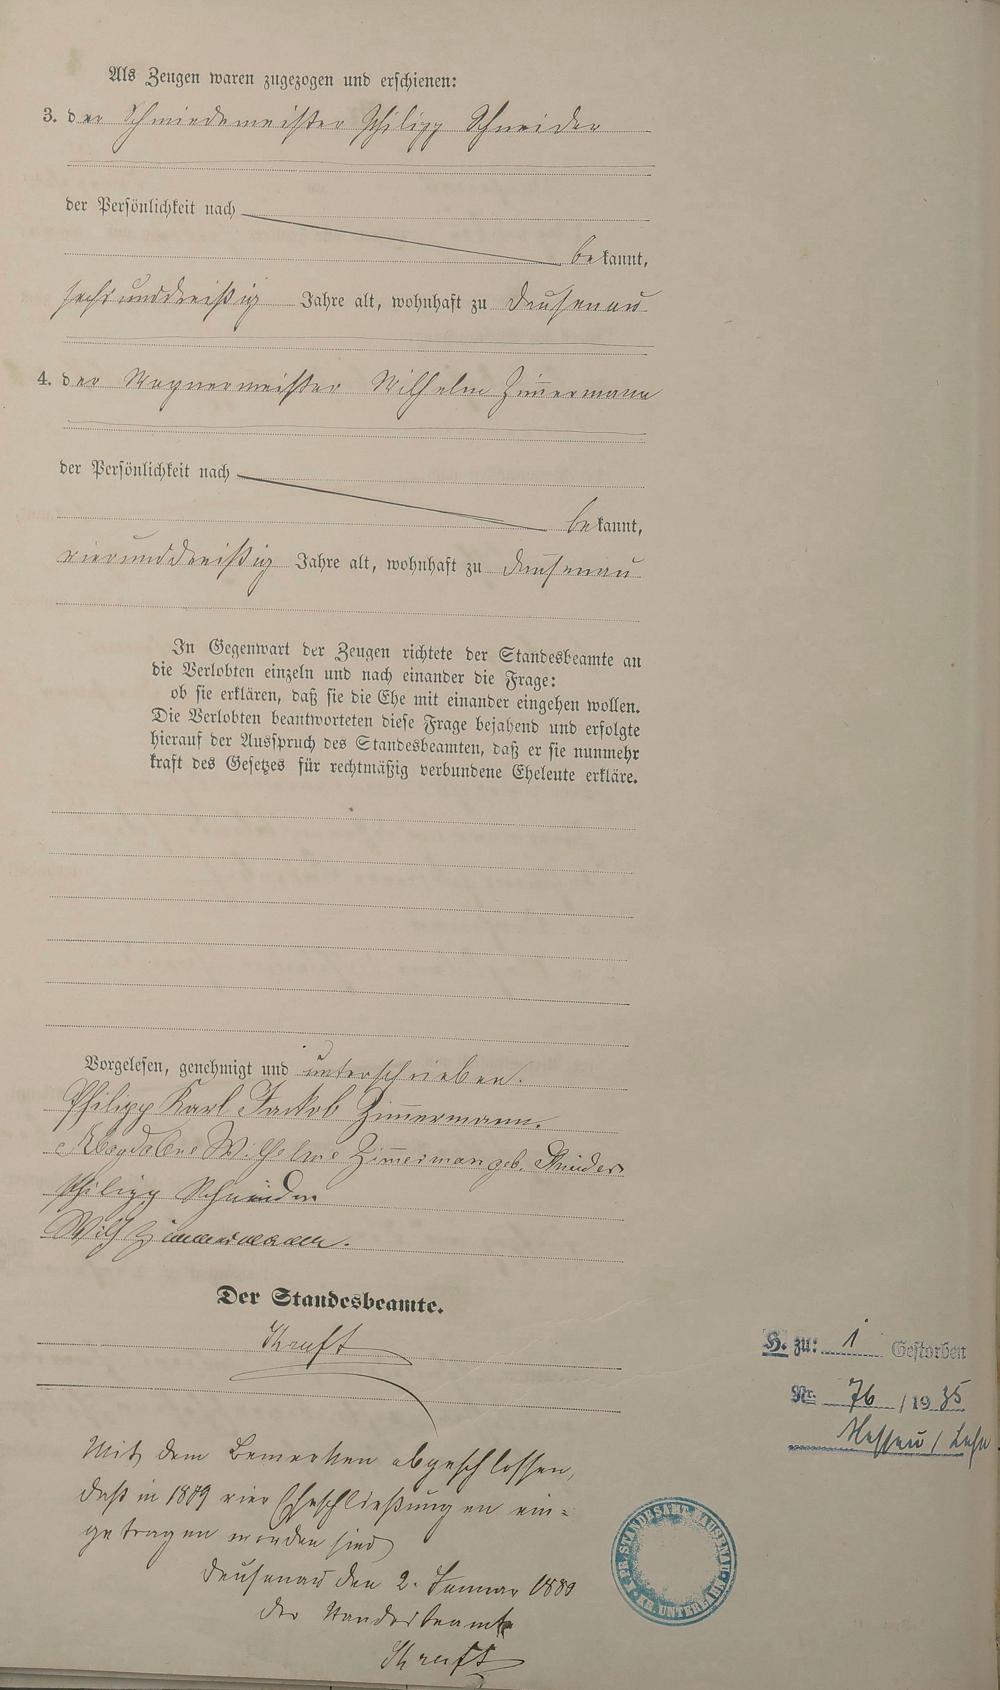 Als Zeugen waren zugezogen und erschienen:
3. der Schmiedemeister Philipp Schneider
der Persönlichkeit nach
bekannt,
sechsunddreißig Jahre alt, wohnhaft zu Dausenau
4. der Wagnermeister Wilhelm Zimmermann
der Persönlichkeit nach
bekannt,
vierunddreißig Jahre alt, wohnhaft zu Dausenau
In Gegenwart der Zeugen richtete der Standesbeamte an
die Verlobten einzeln und nach einander die Frage:
ob sie erklären, daß sie die Ehe mit einander eingehen wollen.
Die Verlobten beantworteten diese Frage bejahend und erfolgte
hierauf der Ausspruch des Standesbeamten, daß er sie nunmehr
kraft des Gesetzes für rechtmäßig verbundene Eheleute erkläre.
Vorgelesen, genehmigt und unterschrieben.
Philipp Karl Jackob Zimmermann.
Magdalene Wilhelmine Zimmerman geb.
Philipp Schneider
Wilh Zimmermann.
Der Standesbeamte.
H. zu: 1 Gestorben
Nr. 76 / 1935
Nassau / Lahn
Mit dem Bemerken abgeschlossen,
daß in 1889 vier Eheschließungen ein-
getragen worden sind
Dausenau den 2. Januar
der Standesbeamte
K. PR. STANDESAMT DAUSENAU · KR. UNTERLAHN ·